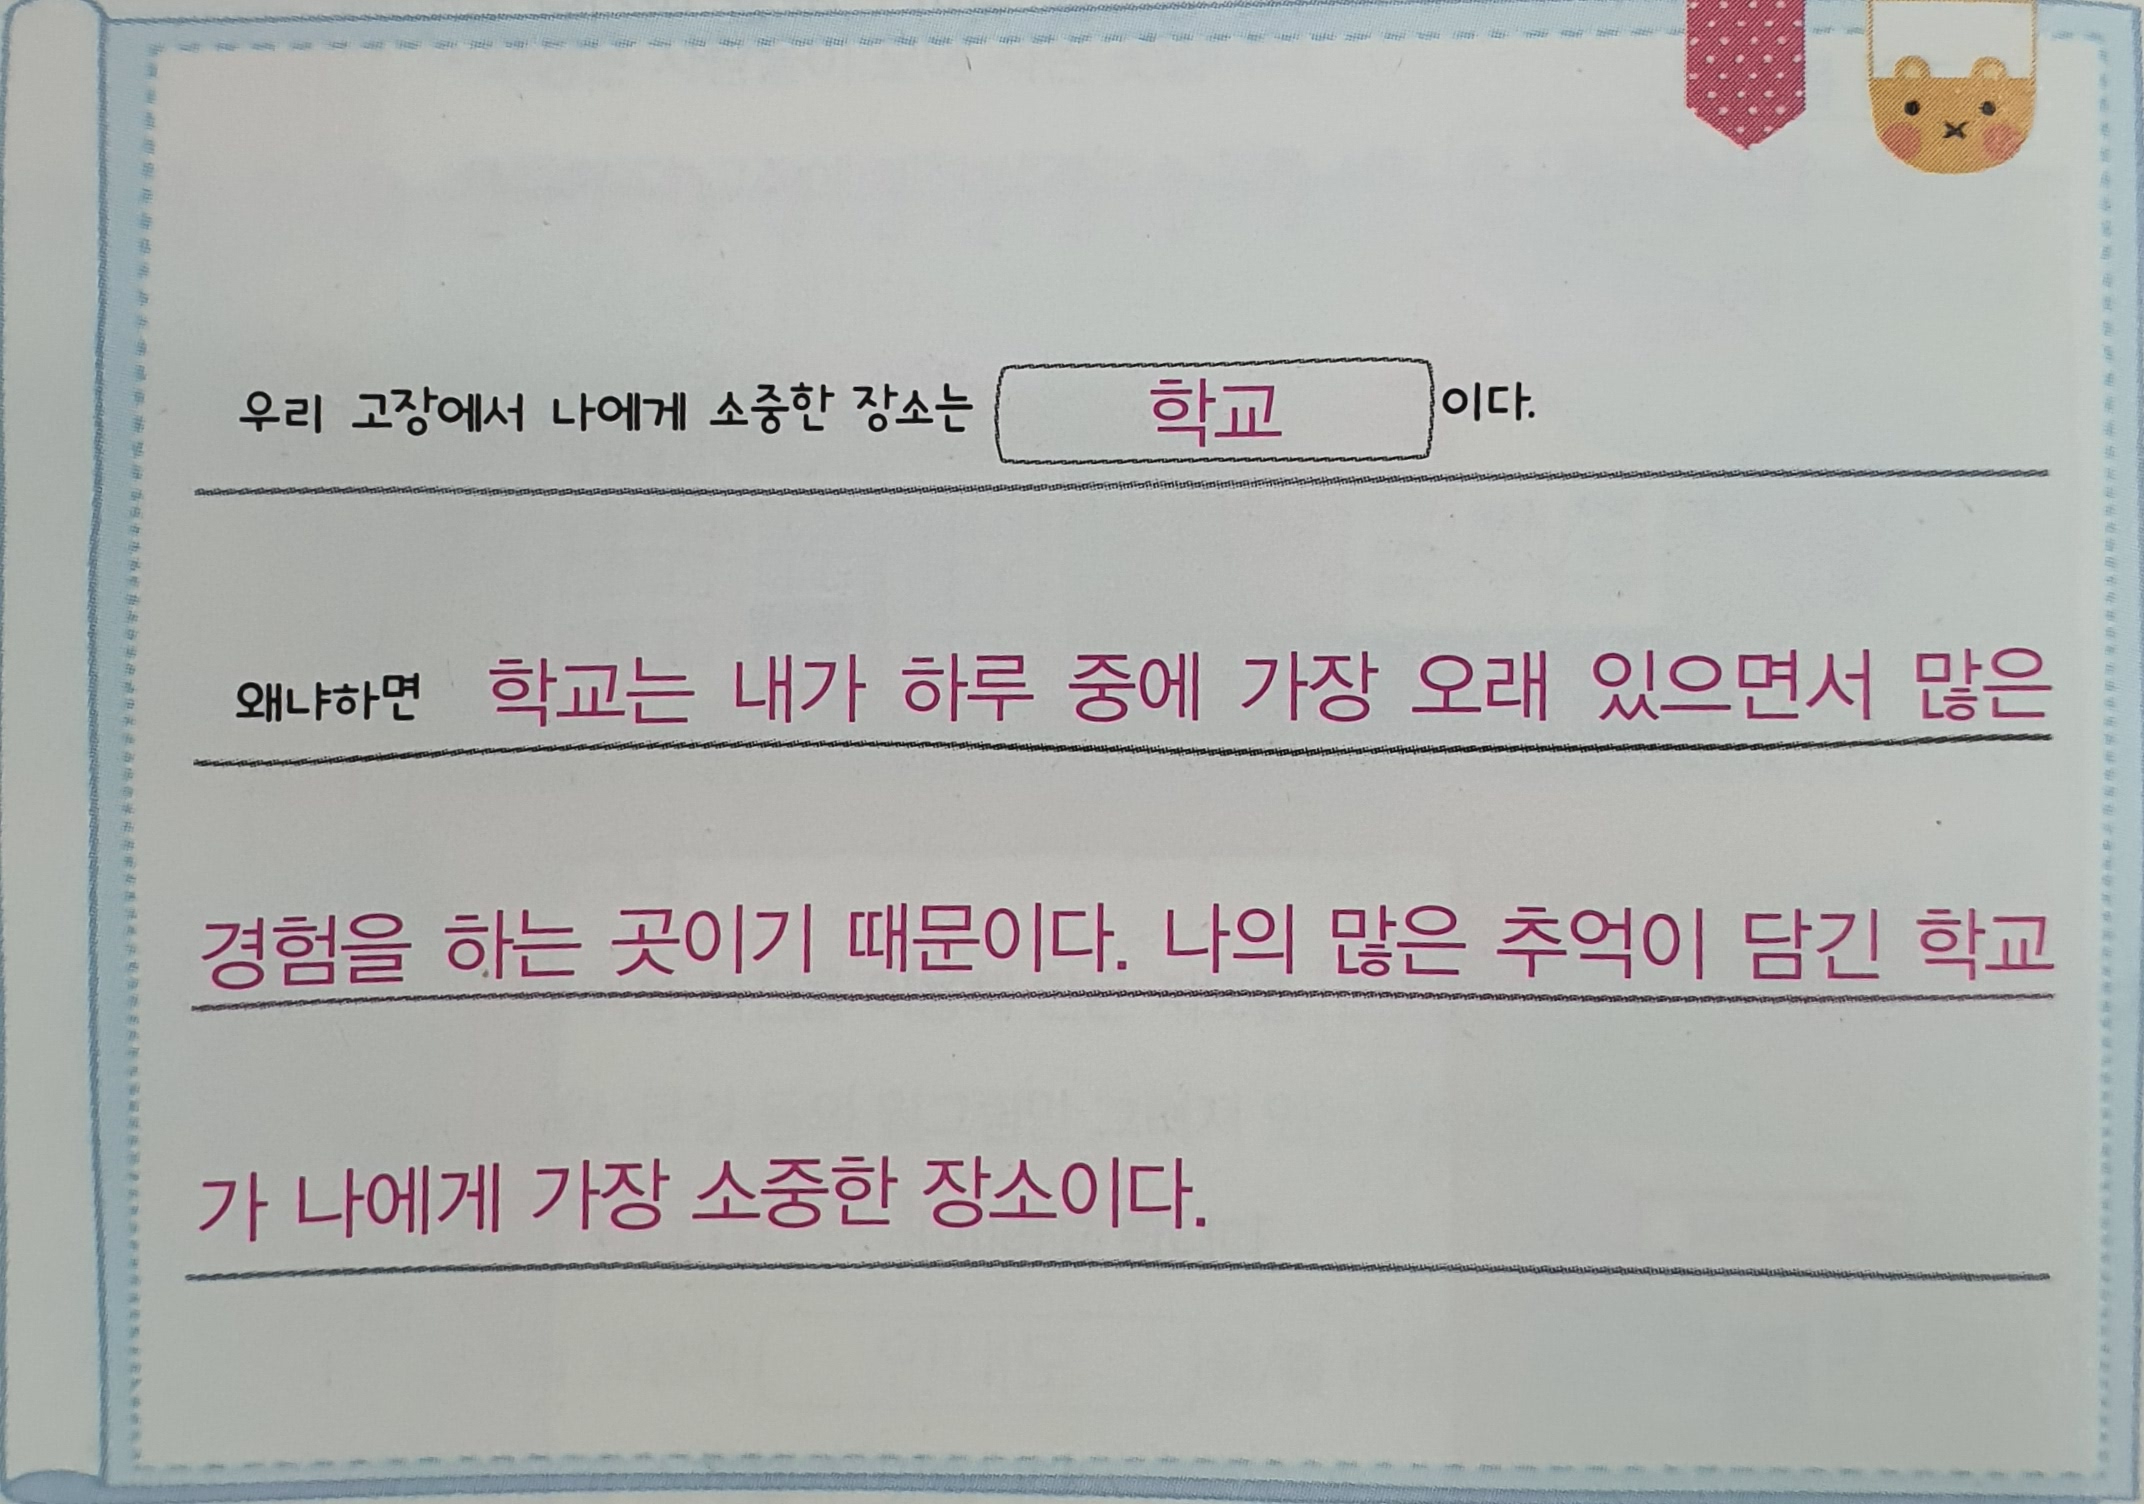 우리 고장에서 나에게 소중한 장소는 학교 이다.
왜냐하면 학교는 내가 하루 중에 가장 오래 있으면서 많은
경험을 하는 곳이기 때문이다. 나의 많은 추억이 담긴 학교
가 나에게 가장 소중한 장소이다.